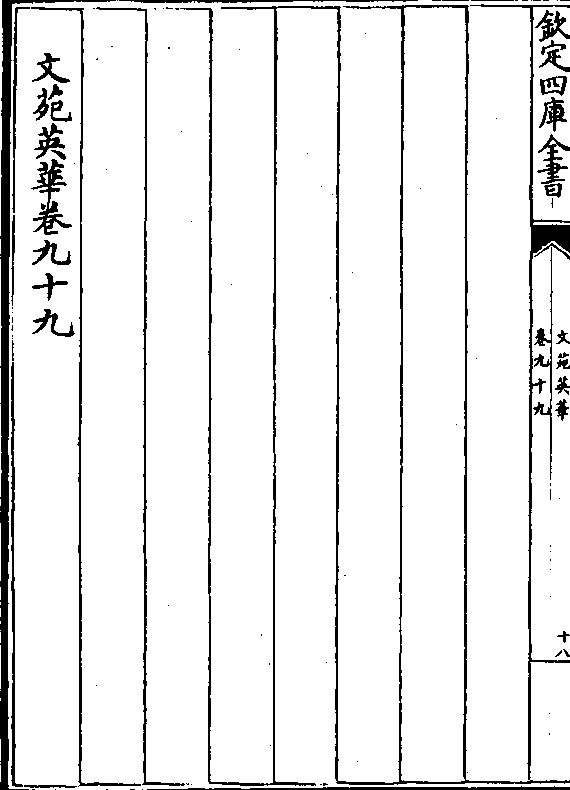 欽定四庫全書
文苑英華
卷九十九
十八
文苑英華卷九十九